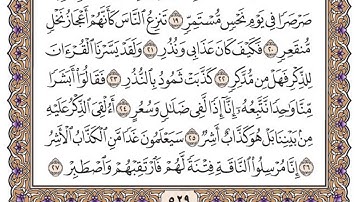 صَرْصَرًا فِي يَوْمِ نَحْسٍ مُّسْتَمِرٍّ ١٩ تَنزِعُ النَّاسَ كَأَنَّهُمْ أَعْجَازُ نَخْلٍ
مُّنقَعِرٍ ٢٠ فَكَيْفَ كَانَ عَذَابِي وَنُذُرِ ٢١ وَلَقَدْ يَسَّرْنَا الْقُرْءَانَ
لِلذِّكْرِ فَهَلْ مِن مُّدَّكِرٍ ٢٢ كَذَّبَتْ ثَمُودُ بِالنُّذُرِ ٢٣ فَقَالُوٓا۟ أَبَشَرًا
مِّنَّا وَٰحِدًا نَّتَّبِعُهُۥٓ إِنَّآ إِذًا لَّفِي ضَلَٰلٍ وَسُعُرٍ ٢٤ أَءُلْقِيَ الذِّكْرُ عَلَيْهِ
مِنۢ بَيْنِنَا بَلْ هُوَ كَذَّابٌ أَشِرٌ ٢٥ سَيَعْلَمُونَ غَدًا مَّنِ الْكَذَّابُ الْأَشِرُ
٢٦ إِنَّا مُرْسِلُوا۟ النَّاقَةِ فِتْنَةً لَّهُمْ فَارْتَقِبْهُمْ وَاصْطَبِرْ ٢٧
٥٢٩